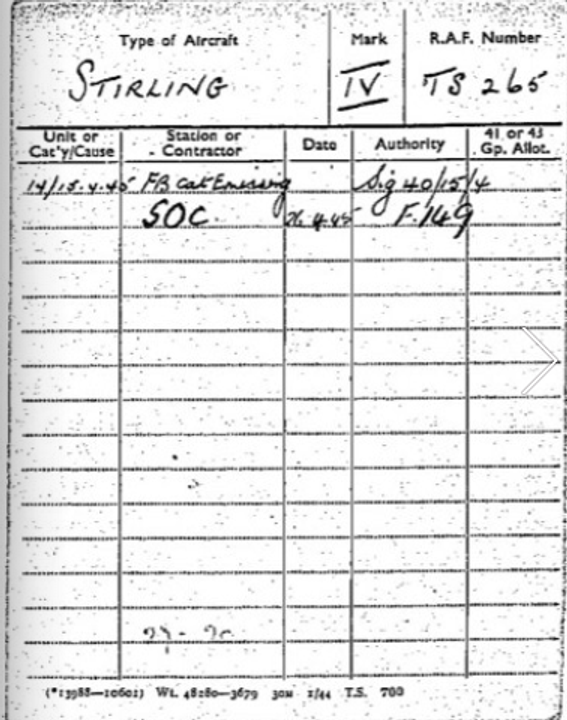 Type of Aircraft
Mark
R.A.F. Number
STIRLING
IV
TS 265
Unit or Cat'y/Cause
Station or Contractor
Date
Authority
41 or 43 Gp. Allot.
14/15.4.45 FB Cat E missing Sig 40/15/4
SOC 26.4.45 F.149
(*13988—10602) Wt. 48280—3679 30M 2/44 T.S. 700